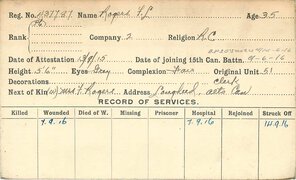 Reg. No. 437787 Name Rogers F.L. Age 35
Rank (Pte) Company 2 Religion R.C.
Date of Attestation 13/9/15 Date of joining 15th Can. Battn. 9-6-16
Height 5'6" Eyes Grey Complexion Fair Original Unit 51
Decorations Clerk
Next of Kin (w) Mrs F. Rogers Address Lougheed, Alta Can
RECORD OF SERVICES.
Killed Wounded Died of W. Missing Prisoner Hospital Rejoined Struck Off
7.9.16 7.9.16 14.9.16